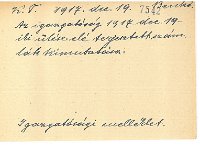 V. T. 1917. dec 19. 7942 Benkő.
Az igazgatóság 1917. dec 19.
iki ülése elé terjesztett szám-
lák kimutatása.
Igazgatósági melléklet.